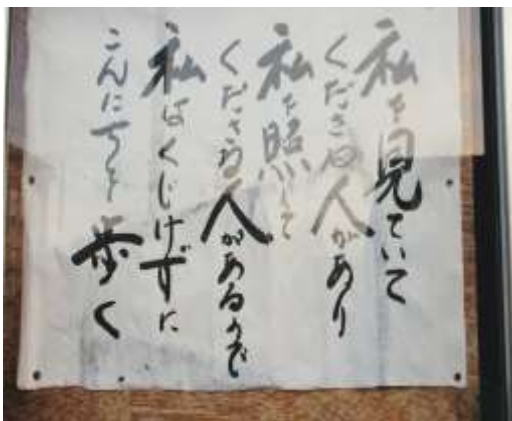 私を見ていて
くださる人があり
私を照らして
くださる人があるので
私はくじけずに
こんにちを歩く